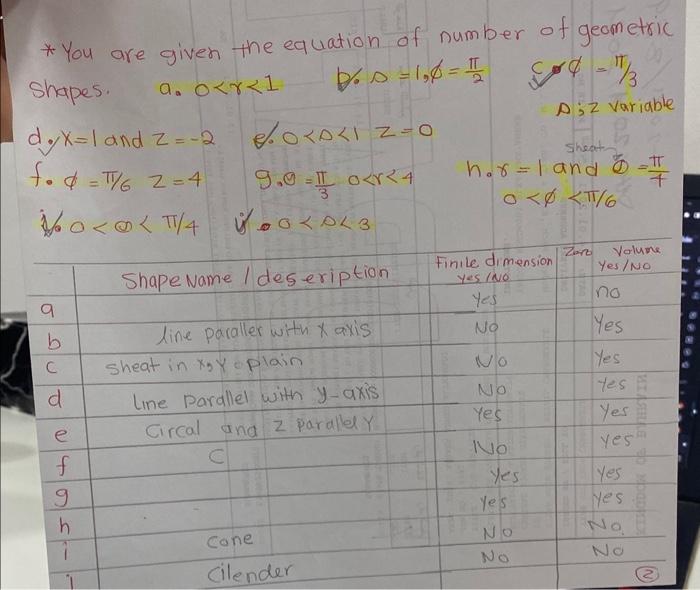 * You are given the equation of number of geometric
shapes. a. 0<r<1 b. ρ = 1, φ = π/2 c. φ = π/3
ρ ; z variable
d. x=1 and z=-2 e. 0<ρ<1 z=0
sheat
f. φ = π/6 z=4 g. θ = π/3 0<r<4 h. r = 1 and θ = π/4
0 < φ < π/6
i. 0 < θ < π/4 j. 0 < ρ < 3
Shape Name / deseription Finile dimension yes/No Zero Volume Yes/No
a Yes no
b line paraller with x axis No Yes
c sheat in x,y plain No Yes
d Line Parallel with y-axis No Yes
e Circal and z parallel Y Yes Yes
f C No yes
g Yes Yes
h Yes Yes
i Cone No No
j Cilender No No
2